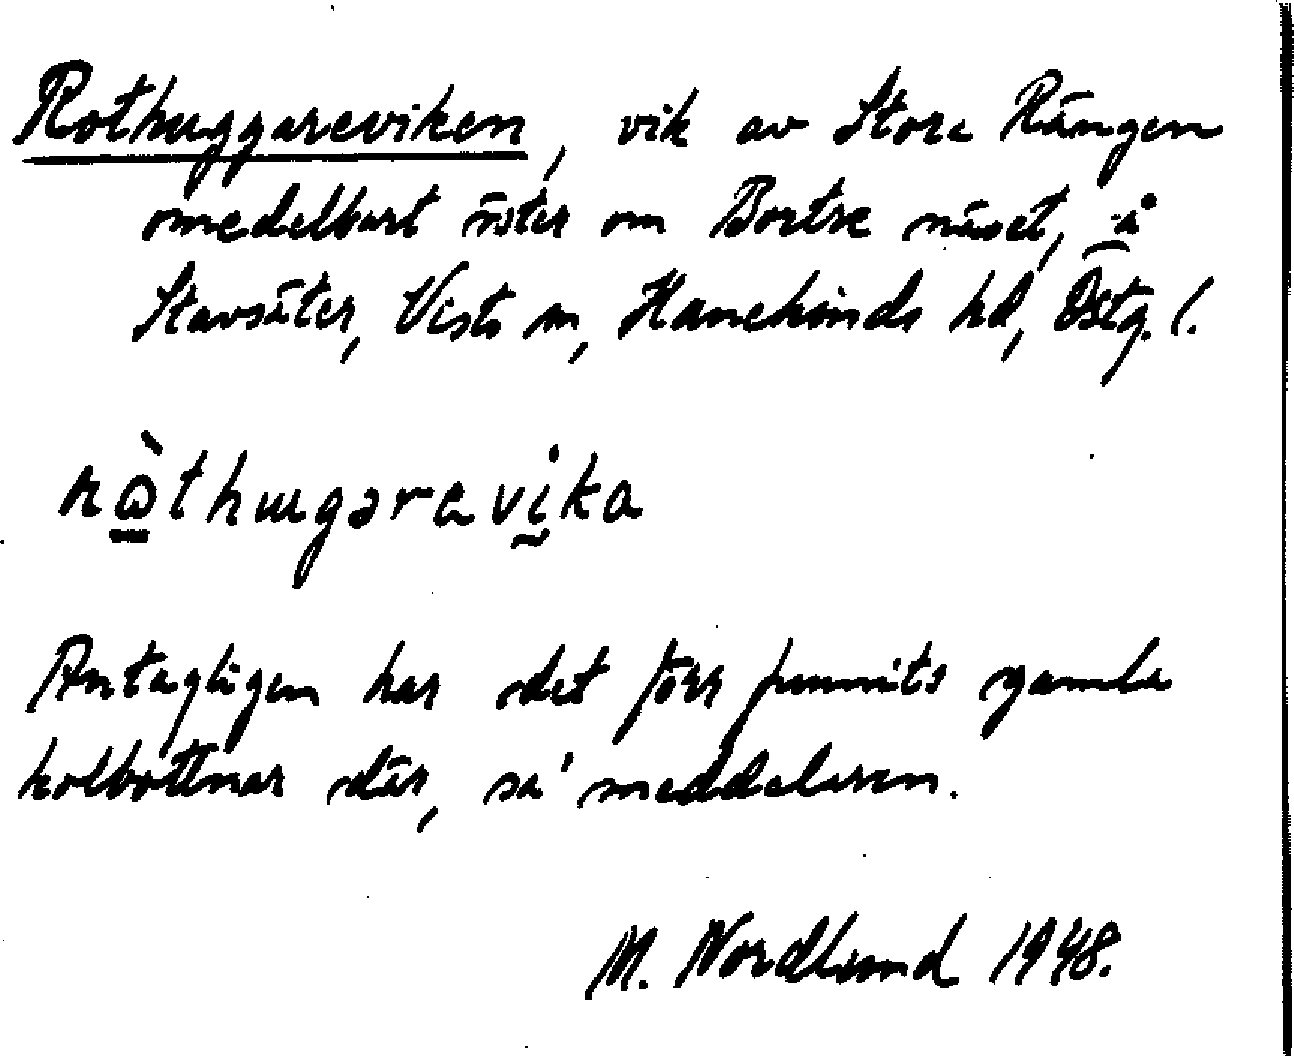 Rothuggareviken, vik av Stora Rängen
omedelbart öster om Bortre näset, å
Stavsäter, Vists sn, Hanekinds hd, Östg. l.
Antagligen har det förr funnits gamla
kolbottnar där, sa' meddelaren.
M. Nordlund 1948.